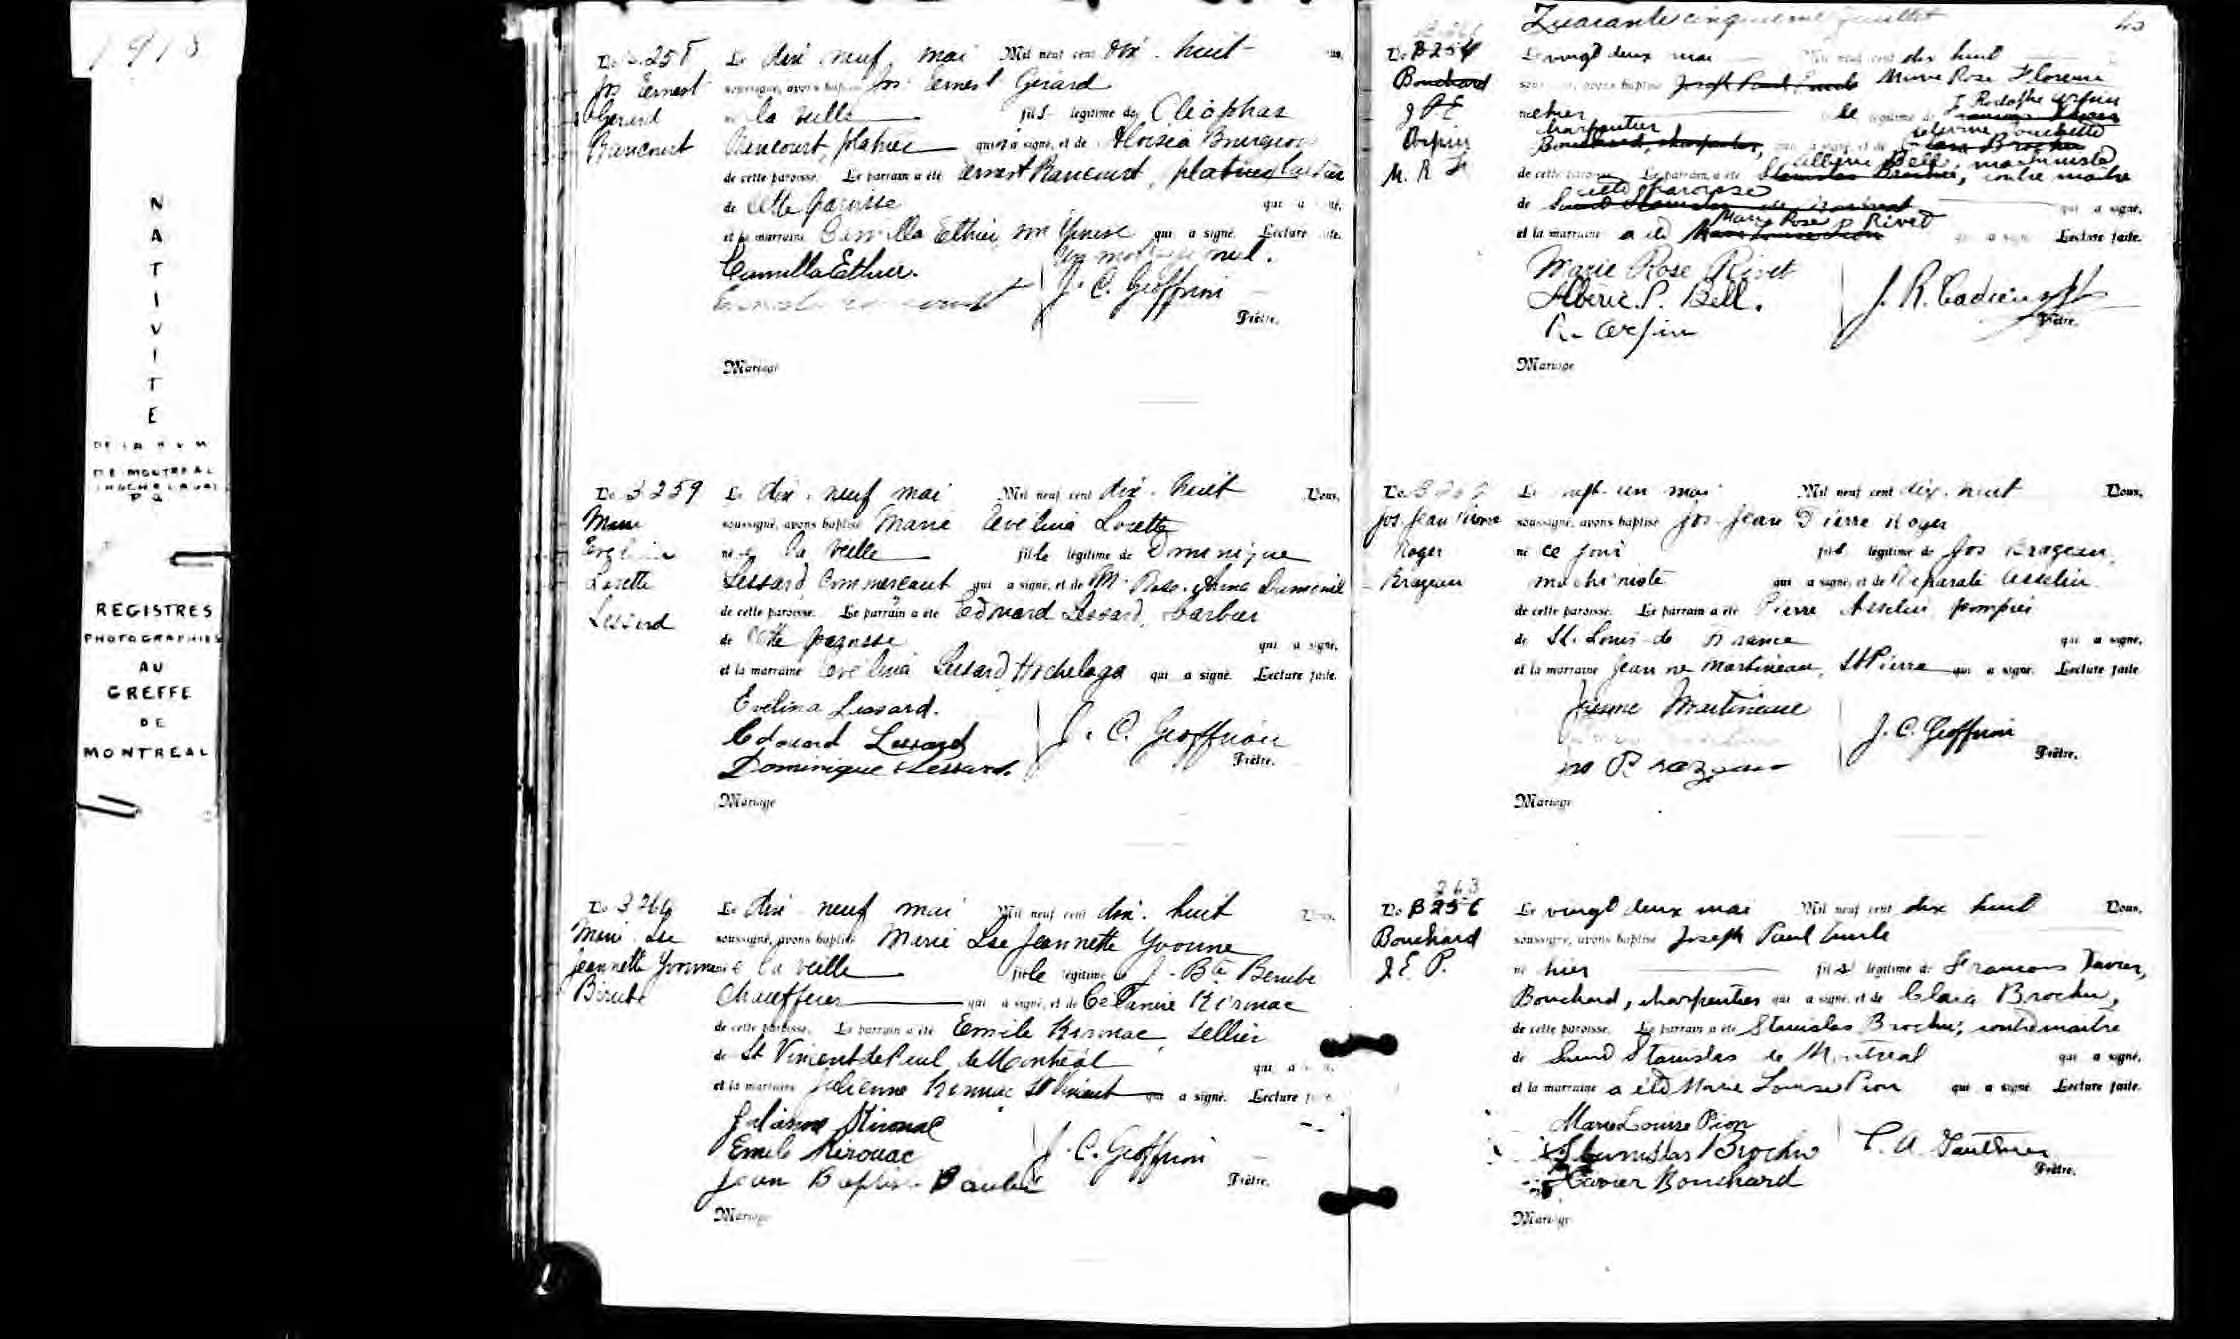 1918
N
A
T
I
V
I
T
E
DE LA B V M
DE MONTREAL
(HOCHELAGA)
P Q
REGISTRES
PHOTOGRAPHIES
AU
GREFFE
DE
MONTREAL
No B 258 Le dix neuf mai Mil neuf cent dix-huit
Jos Ernest soussigné, avons baptisé Jos Ernest Gerard
Gerard né la veille fils légitime de Cléophas
Rancourt Rancourt, platrier qui a signé, et de Bourgeois
de cette paroisse. Le parrain a été Ernest Rancourt, platrier
de cette paroisse qui a
et la marraine Camilla Ethier son épouse qui a signé. Lecture
un mot rayé nul.
Camilla Ethier.
J. C. Geoffrion
Prêtre.
Mariage
No B 259 Le dix-neuf mai Mil neuf cent dix-huit Nous,
Marie soussigné, avons baptisé Marie Evelina Lorette
Evelina née la veille fille légitime de Dominique
Lorette Lessard, Commercant qui a signé, et de M. Rose-Anna Dumenil
Lessard de cette paroisse. Le parrain a été Edouard Lessard, barbier
de cette paroisse qui a signé.
et la marraine Evelina Lessard, Hochelaga qui a signé. Lecture faite.
Evelina Lessard.
Edouard Lessard
Dominique Lessard.
J. C. Geoffrion
Prêtre.
Mariage
No B 260 Le dix-neuf mai Mil neuf cent dix-huit Nous,
Marie Lse soussigné, avons baptisé Marie Lse Jeannette Yvonne
Jeannette Yvonne née la veille fille légitime de J-Bte Berube
Berube Chauffeur qui a signé, et de Kirouac
de cette paroisse. Le parrain a été Emile Kirouac, sellier
de St Vincent de Paul de Montréal qui a
et la marraine Julienne Kirouac St Vincent qui a signé. Lecture
Julienne Kirouac
Emile Kirouac
Jean Baptiste Bérubé
J. C. Geoffrion
Prêtre.
Mariage
Quarante cinquième feuillet
45
No B 254 Le vingt deux mai Mil neuf cent dix huit
Bouchard soussigné, avons baptisé Joseph Paul Emile Marie Rose Florence
J P E née hier le légitime de J. Rodolphe Arpin
Arpin charpentier
Bouchard, charpentier, qui a signé, et de Clara Brochu
M. R F de cette paroisse. Le parrain a été Stanislas Brochu, contre maitre Bell, machiniste
cette paroisse
de Saint Stanislas de Montreal qui a signé.
et la marraine a été Marie Louise Pion Marie Rose Rivet qui a signé Lecture faite.
Marie Rose Rivet
Albéric P. Bell.
R. Arpin
J. R. Cadieux
Prêtre.
Mariage
No B Le vingt-un mai Mil neuf cent dix-huit Nous,
Jos. Jean Pierre soussigné, avons baptisé Jos-Jean Pierre Roger
Roger né ce jour fils légitime de Jos Brazeau,
Brazeau machiniste qui a signé, et de Réparate Asselin
de cette paroisse. Le parrain a été Pierre Asselin, pompier
de St. Louis de France qui a signé.
et la marraine Jeanne Martineau, St Pierre qui a signé. Lecture faite.
Jeanne Martineau
Jos Brazeau
J. C. Geoffrion
Prêtre.
Mariage
263
No B 256 Le vingt deux mai Mil neuf cent dix huit Nous,
Bouchard soussigné, avons baptisé Joseph Paul Emile
J. E. P. né hier fils légitime de Francois Xavier,
Bouchard, charpentier qui a signé, et de Clara Brochu,
de cette paroisse. Le parrain a été Stanislas Brochu, contremaitre
de Saint Stanislas de Montreal qui a signé.
et la marraine a été Marie Louise Pion qui a signé Lecture faite.
Marie Louise Pion
Stanislas Brochu
Xavier Bouchard
Prêtre.
Mariage